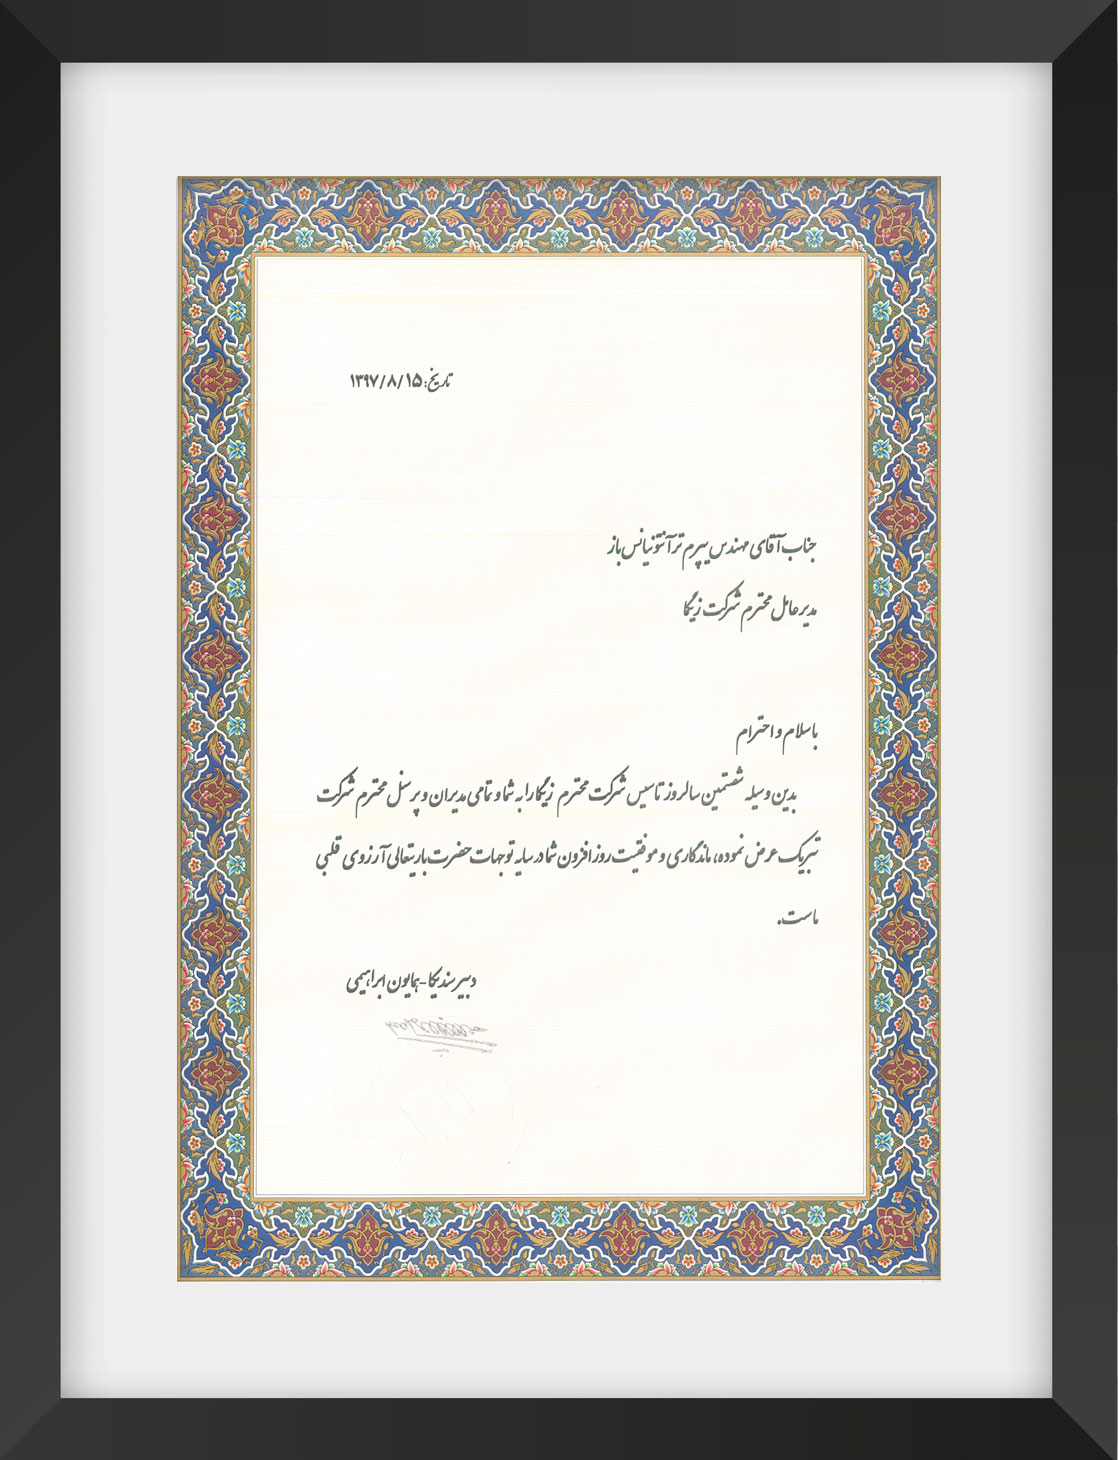 تاریخ: ۱۳۹۷/۸/۱۵
جناب آقای مهندس یپرم ترآنتونیانس باز
مدیر عامل محترم شرکت زیگا
با سلام و احترام
بدین وسیله شصتمین سالروز تاسیس شرکت محترم زیگا را به شما و تمامی مدیران و پرسنل محترم شرکت
تبریک عرض نموده، ماندگاری و موفقیت روز افزون شما در سایه توجهات حضرت باریتعالی آرزوی قلبی
ماست.
دبیر سندیکا - همایون ابراهیمی